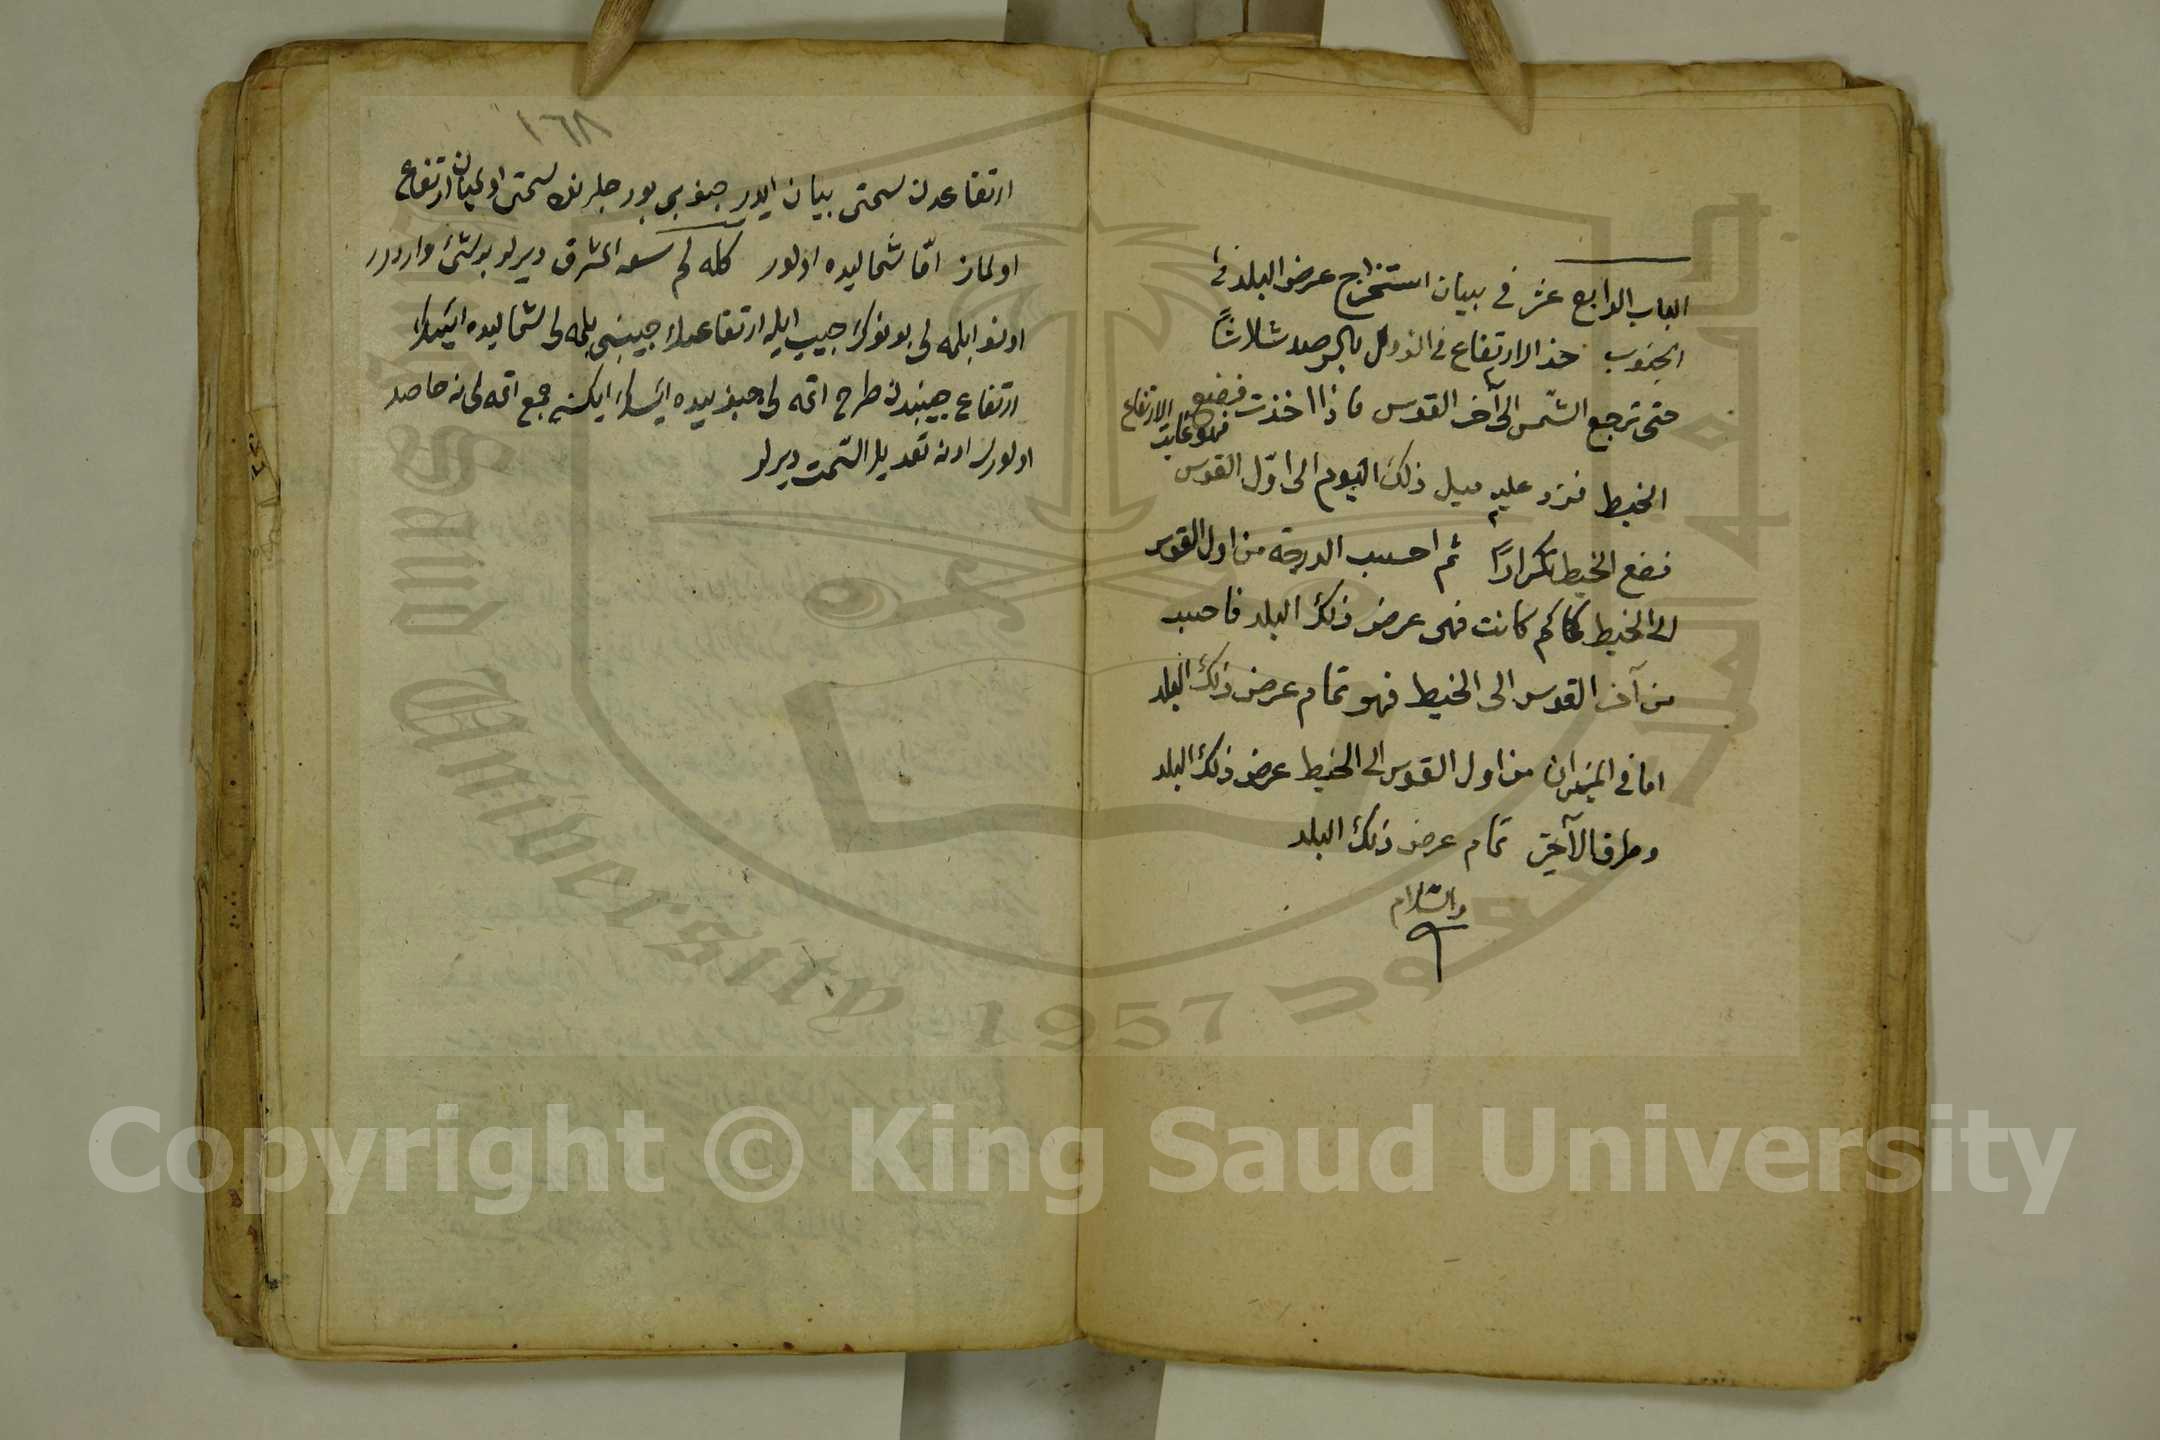 الباب الرابع عشر في بيان استخراج عرض البلد في
الجنوب خذ الارتفاع في الزوال بالرصد ثلاثاً
حتى ترجع الشمس الى آخر القوس فاذا اخذت فضع
فهو غاية الارتفاع
الخيط فزد عليه ميل ذلك اليوم الى اوّل القوس
فضع الخيط تكراراً ثم احسب الدرجة من اول القوس
الى الخيط كم كانت فهى عرض ذلك البلد فاحسب
من آخر القوس الى الخيط فهو تمام عرض ذلك البلد
اما في الميزان من اول القوس الى الخيط عرض ذلك البلد
وطرف الآخر تمام عرض ذلك البلد
والسلام
١٦٨
ارتفاعدن سمتى بيان ايدر جنوبى بورجلرنك سمتى اولميان ارتفاع
اولماز امّا شماليده اولور كله لم سعه المشرق ديرلر بر شئ واردر
اونو بلمه لى بونوك جيب ايله ارتفاعك جيبنى بلمه لى شماليده ايسك
ارتفاع جيبندن طرح اتمه لى جنوبيده ايسك ايكسنه جمع اتمه لى نه حاصل
اولورسه اونه تعديل السمت ديرلر
Copyright © King Saud University
King Saud University 1957